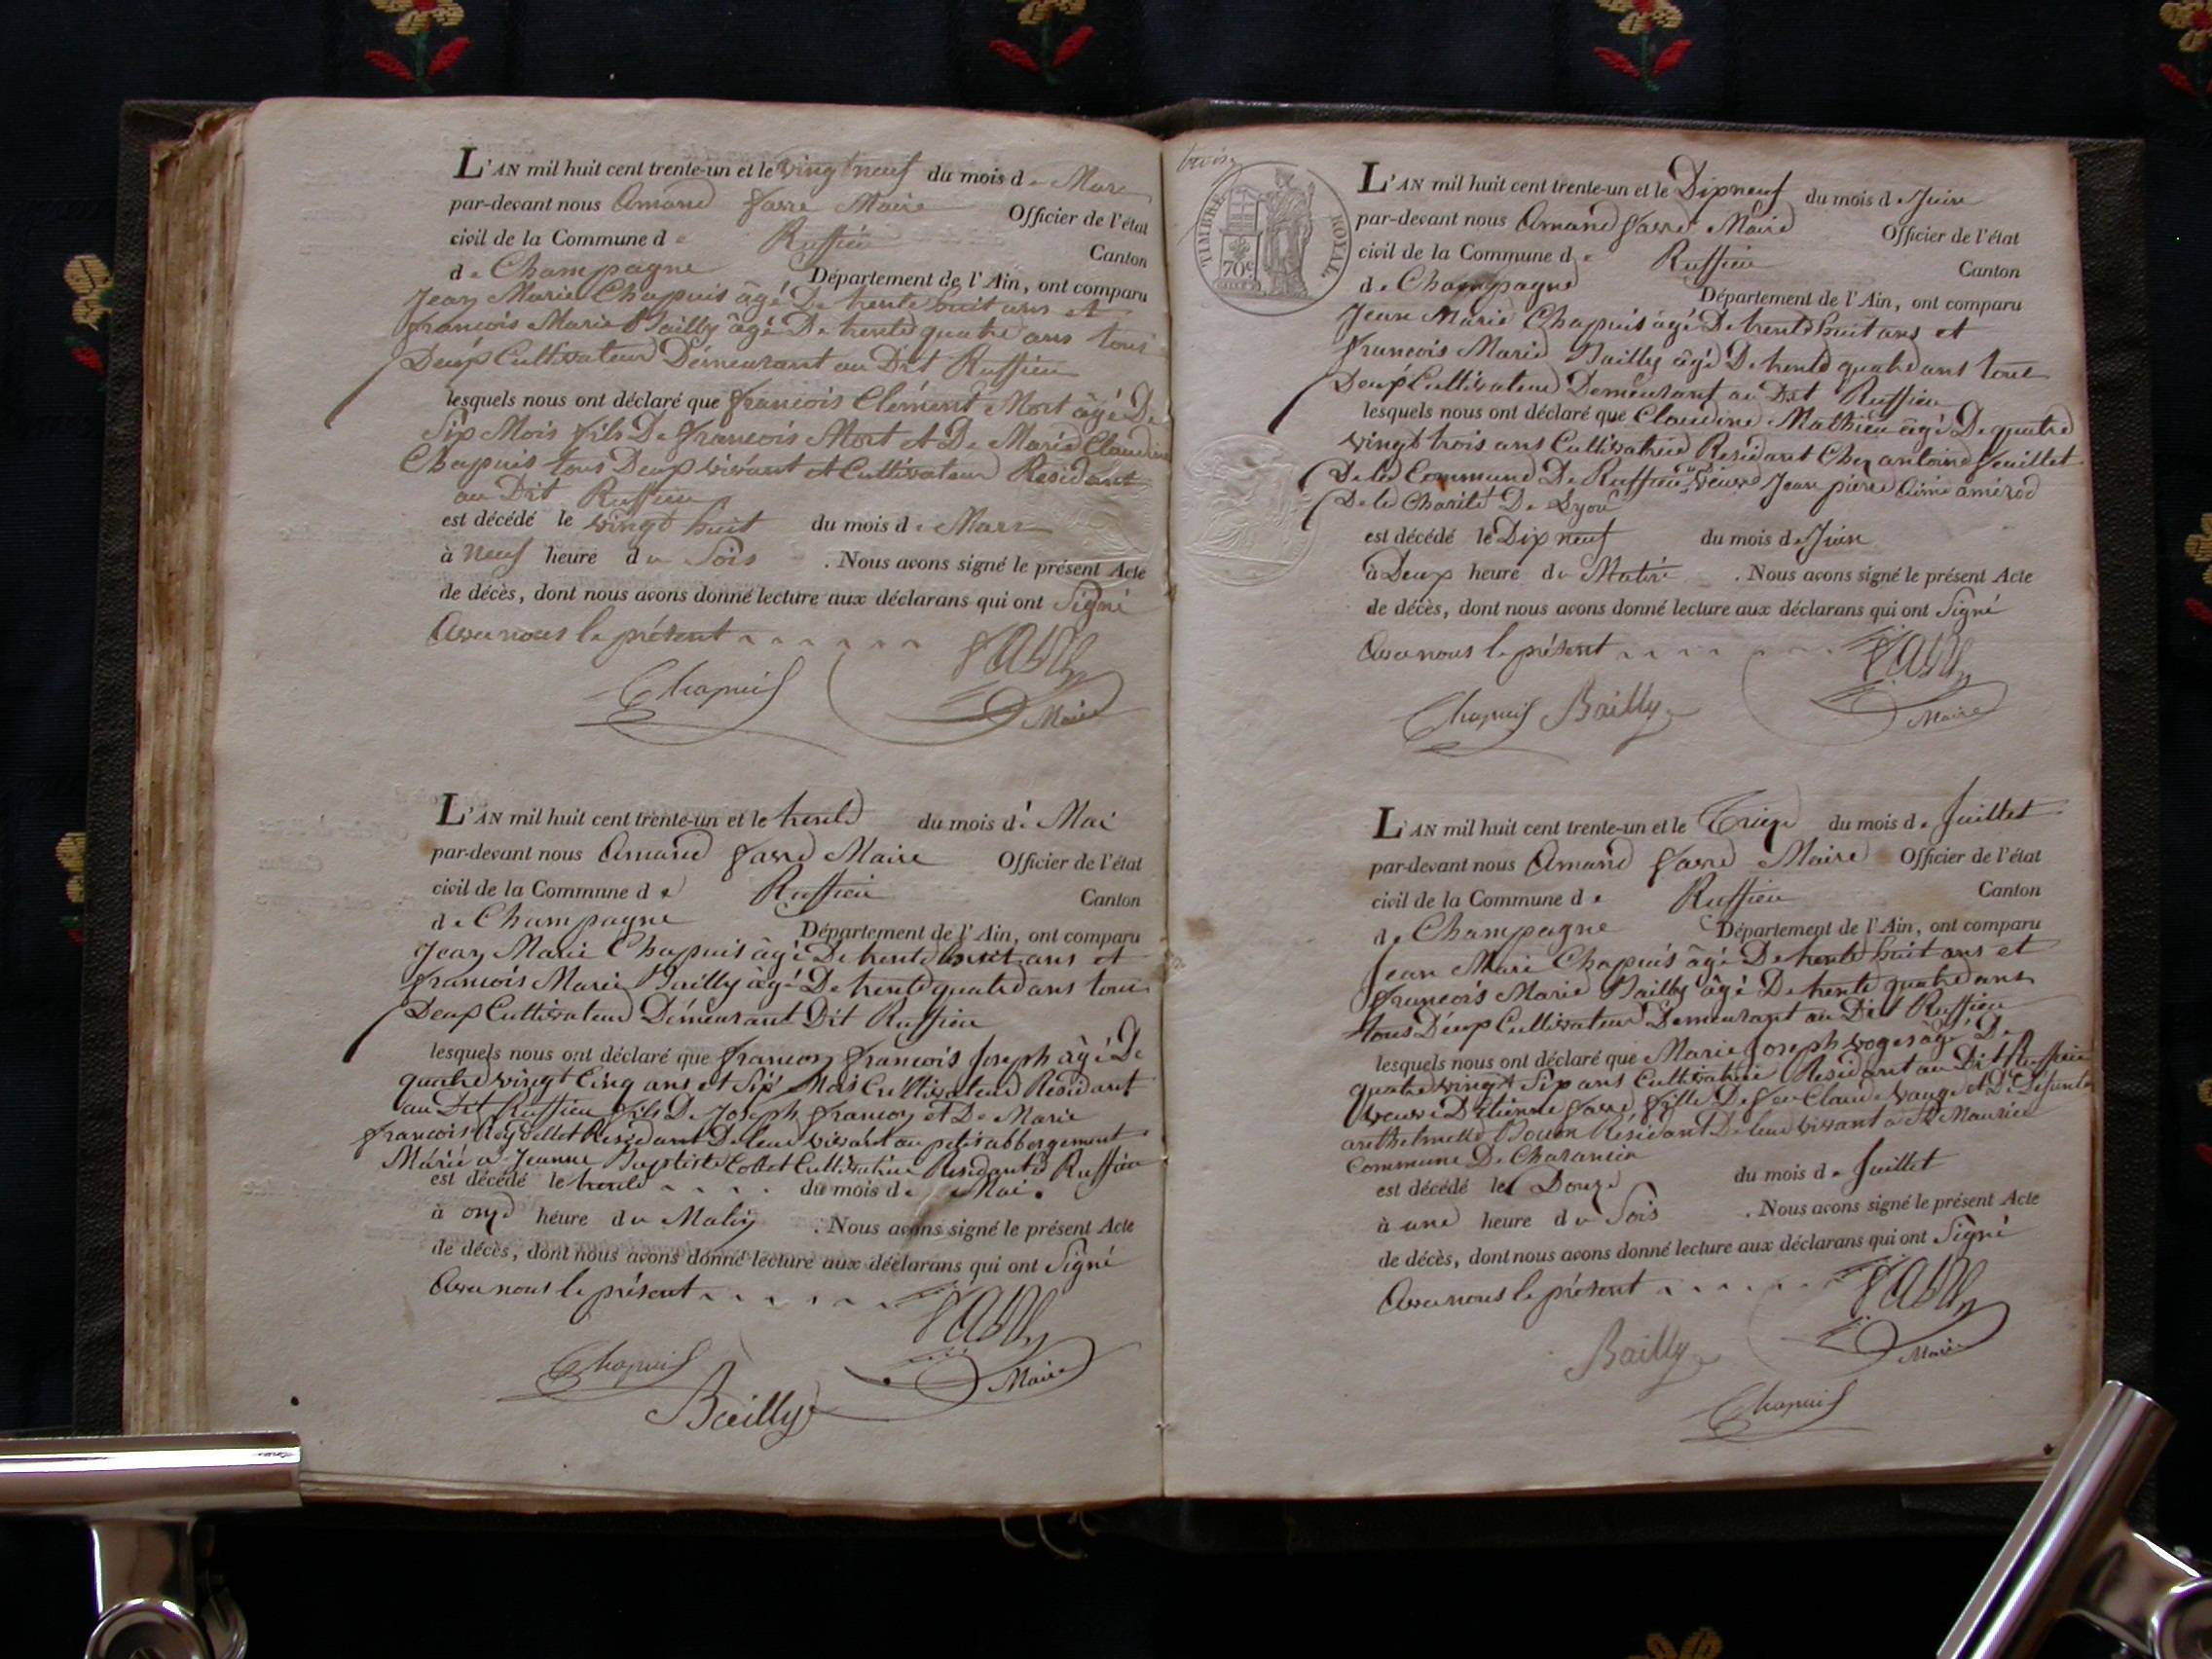 L'AN mil huit cent trente-un et le vingt neuf du mois de Mars
par-devant nous Amand favre Maire Officier de l'état
civil de la Commune de Ruffieu Canton
de Champagne Département de l'Ain, ont comparu
Jean Marie Chapuis âgé De trente huit ans et
francois Marie Bailly âgé De trente quatre ans tous
Deux Cultivateur Démeurant au Dit Ruffieu
lesquels nous ont déclaré que francois Clément Mort âgé De
Six Mois fils De francois Mort et De Marie Claudine
Chapuis tous Deux vivant et Cultivateur Residant
au Dit Ruffieu
est décédé le vingt huit du mois de Mars
à neuf heure du Soir . Nous avons signé le présent Acte
de décès, dont nous avons donné lecture aux déclarans qui ont Signé
Avec nous le présent
Chapuis favre Maire
L'AN mil huit cent trente-un et le trente du mois de Mai
par-devant nous Amand favre Maire Officier de l'état
civil de la Commune de Ruffieu Canton
de Champagne Département de l'Ain, ont comparu
Jean Marie Chapuis âgé De trente huit ans et
francois Marie Bailly âgé De trente quatre ans tous
Deux Cultivateur Démeurant Dit Ruffieu
lesquels nous ont déclaré que francon francois Joseph âgé De
quatre vingt Cinq ans et Six Mois Cultivateur Residant
au Dit Ruffieu fils De Joseph francon et De Marie
francois Reydellet Residant De leur vivant au petit abbergement
Marié a Jeanne Baptiste Collet Cultivatrice Residante a Ruffieu
est décédé le trente du mois de Mai.
à onze heure du Matin . Nous avons signé le présent Acte
de décès, dont nous avons donné lecture aux déclarans qui ont Signé
Avec nous le présent
Chapuis Bailly favre Maire
TIMBRE ROYAL
70c
L'AN mil huit cent trente-un et le Dix neuf du mois de Juin
par-devant nous Amand favre Maire Officier de l'état
civil de la Commune de Ruffieu Canton
de Champagne Département de l'Ain, ont comparu
Jean Marie Chapuis âgé De trente huit ans et
francois Marie Bailly âgé De trente quatre ans tous
Deux Cultivateur Demeurant au Dit Ruffieu
lesquels nous ont déclaré que Claudine Mathieu âgé De quatre
vingt trois ans Cultivatrice Residant Chez antoine feuillet
De la Commune De Ruffieu veuve Jean pierre
De la Charité De Lyon
est décédé le Dix neuf du mois de Juin
à Deux heure du Matin . Nous avons signé le présent Acte
de décès, dont nous avons donné lecture aux déclarans qui ont Signé
Avec nous le présent
Chapuis Bailly favre Maire
L'AN mil huit cent trente-un et le Treize du mois de Juillet
par-devant nous Amand favre Maire Officier de l'état
civil de la Commune de Ruffieu Canton
de Champagne Département de l'Ain, ont comparu
Jean Marie Chapuis âgé De trente huit ans et
francois Marie Bailly âgé De trente quatre ans
tous Deux Cultivateur Demeurant au Dit Ruffieu
lesquels nous ont déclaré que Marie Joseph âgé De
quatre vingt Six ans Cultivatrice Residant au Dit Ruffieu
veuve D'Etienne favre fille De feu Claude et De Defunte
Residant De leur vivant a St Maurice
Commune De Charancin
est décédé le Douze du mois de Juillet
à une heure du Soir . Nous avons signé le présent Acte
de décès, dont nous avons donné lecture aux déclarans qui ont Signé
Avec nous le présent
Bailly favre Maire
Chapuis